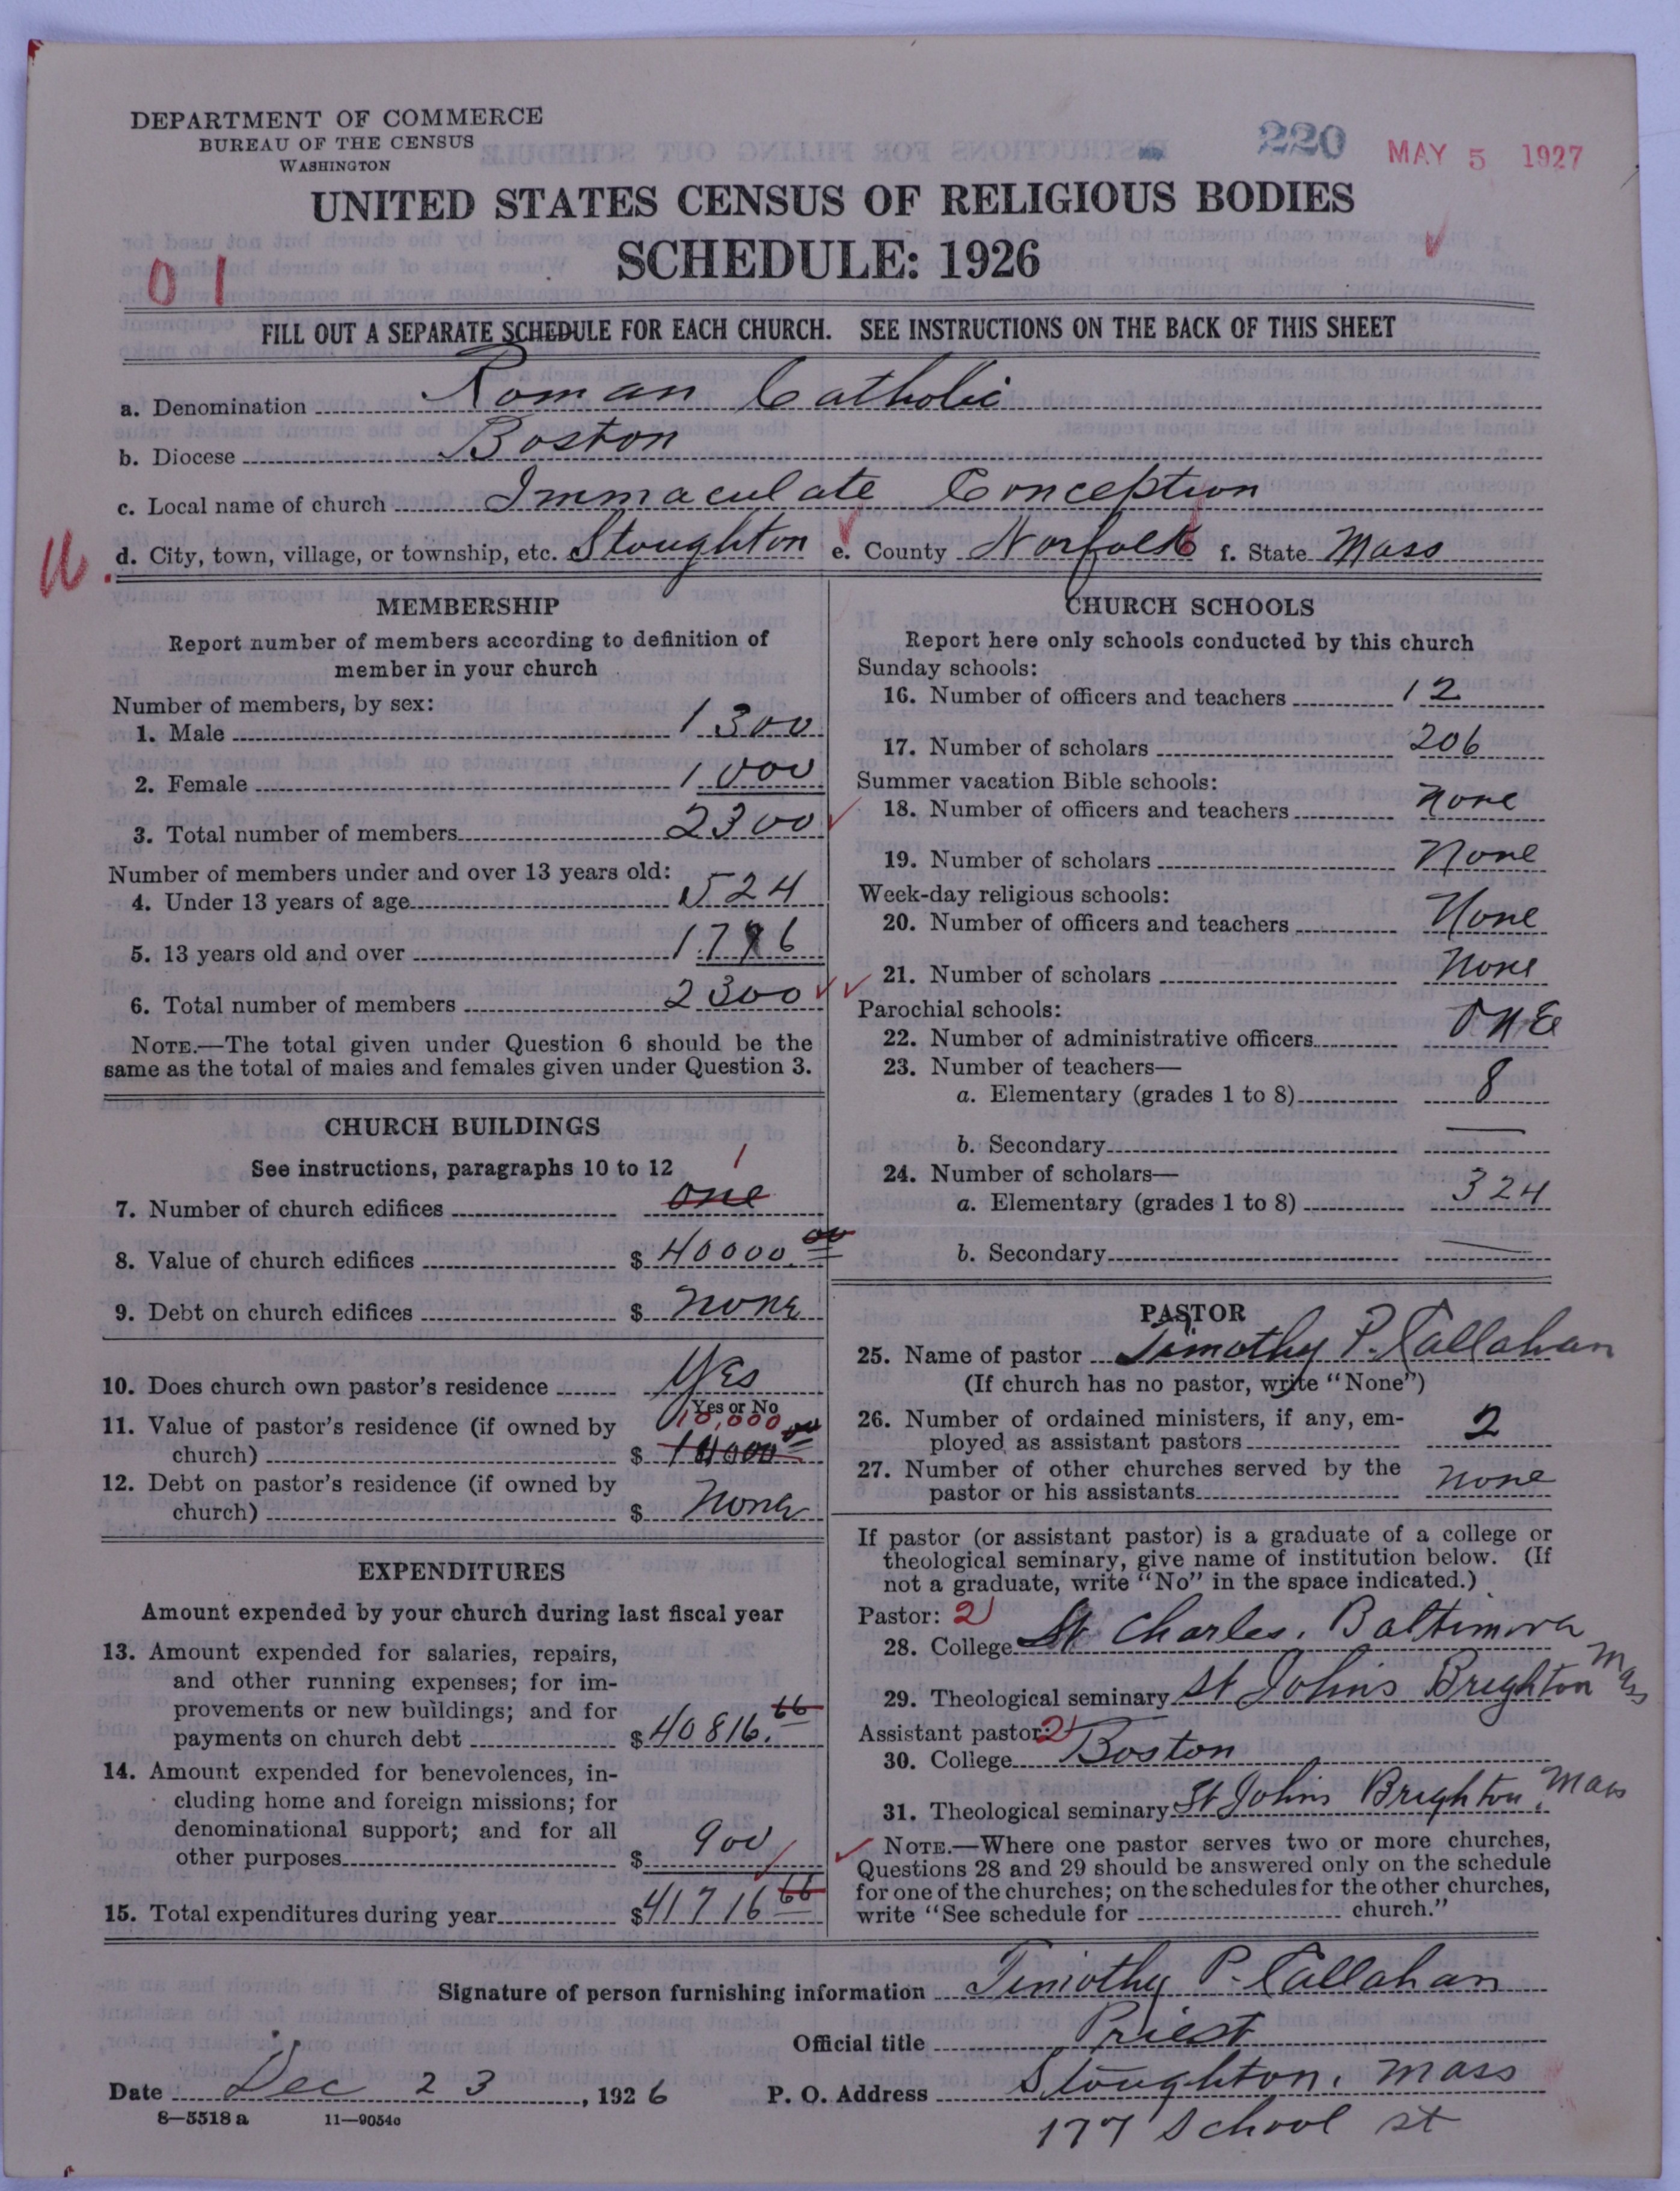 DEPARTMENT OF COMMERCE
BUREAU OF THE CENSUS
WASHINGTON
220 MAY 5 1927
UNITED STATES CENSUS OF RELIGIOUS BODIES
SCHEDULE: 1926
01
FILL OUT A SEPARATE SCHEDULE FOR EACH CHURCH. SEE INSTRUCTIONS ON THE BACK OF THIS SHEET
a. Denomination Roman Catholic
b. Diocese Boston
c. Local name of church Immaculate Conception
d. City, town, village, or township, etc. Stoughton e. County Norfolk f. State Mass
MEMBERSHIP
Report number of members according to definition of
member in your church
Number of members, by sex:
1. Male 1300
2. Female 1000
3. Total number of members 2300
Number of members under and over 13 years old:
4. Under 13 years of age 524
5. 13 years old and over 1776
6. Total number of members 2300
NOTE.—The total given under Question 6 should be the
same as the total of males and females given under Question 3.
CHURCH BUILDINGS
See instructions, paragraphs 10 to 12
1
7. Number of church edifices one
8. Value of church edifices $ 40000.00
9. Debt on church edifices $ none
10. Does church own pastor's residence Yes
Yes or No
11. Value of pastor's residence (if owned by
10,000
church) $ 10000 00
12. Debt on pastor's residence (if owned by
church) $ none
EXPENDITURES
Amount expended by your church during last fiscal year
13. Amount expended for salaries, repairs,
and other running expenses; for im-
provements or new buildings; and for
payments on church debt $ 40816.66
14. Amount expended for benevolences, in-
cluding home and foreign missions; for
denominational support; and for all
other purposes $ 900
15. Total expenditures during year $ 41716 66
CHURCH SCHOOLS
Report here only schools conducted by this church
Sunday schools:
16. Number of officers and teachers 12
17. Number of scholars 206
Summer vacation Bible schools:
18. Number of officers and teachers none
19. Number of scholars None
Week-day religious schools:
20. Number of officers and teachers None
21. Number of scholars None
Parochial schools:
22. Number of administrative officers ONE
23. Number of teachers—
a. Elementary (grades 1 to 8) 8
b. Secondary —
24. Number of scholars—
a. Elementary (grades 1 to 8) 324
b. Secondary —
PASTOR
25. Name of pastor Timothy P. Callahan
(If church has no pastor, write "None")
26. Number of ordained ministers, if any, em-
ployed as assistant pastors 2
27. Number of other churches served by the
pastor or his assistants none
If pastor (or assistant pastor) is a graduate of a college or
theological seminary, give name of institution below. (If
not a graduate, write "No" in the space indicated.)
Pastor: 2
28. College St Charles. Baltimore
29. Theological seminary St Johns Brighton Mass
Assistant pastor: 2
30. College Boston
31. Theological seminary St Johns Brighton, Mass
NOTE.—Where one pastor serves two or more churches,
Questions 28 and 29 should be answered only on the schedule
for one of the churches; on the schedules for the other churches,
write "See schedule for church."
Signature of person furnishing information Timothy P. Callahan
Official title Priest
Date Dec 23, 1926 P. O. Address Stoughton. Mass
8—5518 a 11—9054a
177 School st